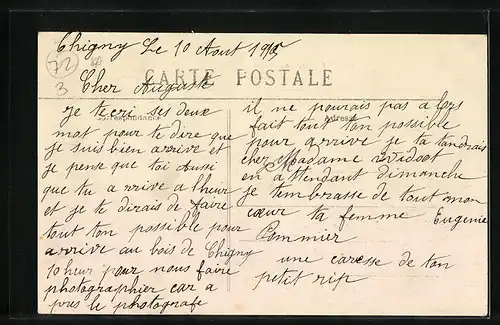 Chigny Le 10 Aout 1915
72
3
CARTE POSTALE
Cher Auguste
Correspondance
Adresse
je te cri ses deux
mot pour te dire que
je suis bien arrive et
je pense que toi aussi
que tu a arrive a lheur
et je te dirais de faire
tout ton possible pour
arrive au bois de Chigny
10 heur pour nous faire
photographier car a
pres le photografe
il ne pourais pas a lors
fait tout ton possible
pour arrive je ta tandrais
cher Madame
en attendant dimanche
je tembrasse de tout mon
cœur ta femme Eugenie
Pommier
une caresse de ton
petit rip